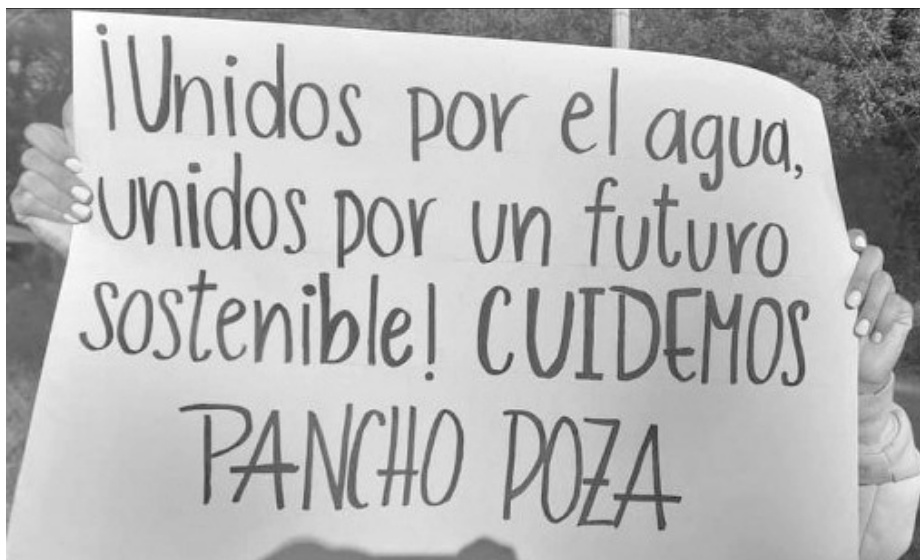 ¡Unidos por el agua,
unidos por un futuro
sostenible! CUIDEMOS
PANCHO POZA